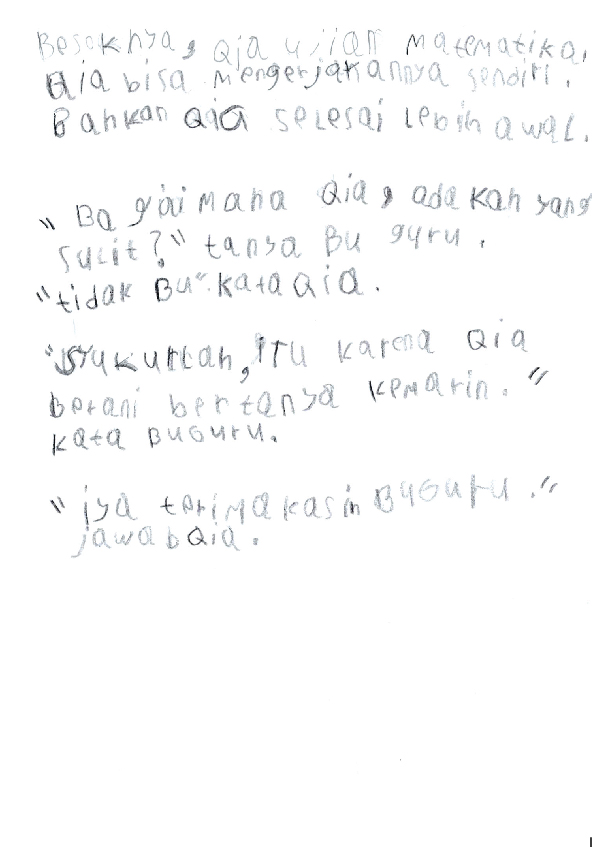 Besoknya, Qia ujian matematika,
Qia bisa mengerjakannya sendiri.
Bahkan Qia selesai lebih awal.
"Bagaimana Qia, adakah yang
sulit?" tanya Bu guru.
"tidak Bu" kata Qia.
"syukurlah, itu karena Qia
berani bertanya kemarin."
kata Buguru.
"iya terimakasih Buguru."
jawab Qia.